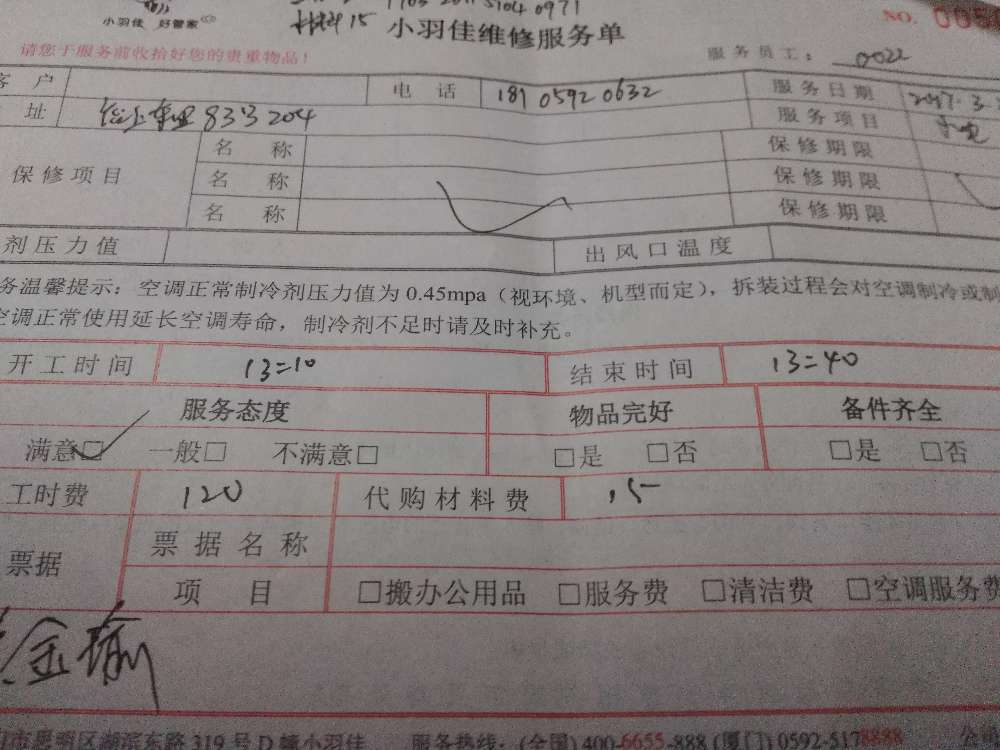 小羽佳 好管家
材料15 小羽佳维修服务单 NO. 005
请您于服务前收拾好您的贵重物品! 服务员工: 0022
客 户 电 话 181 0592 0632 服务日期 2017.3.
址 833 204 服务项目
保修项目 名 称 保修期限
名 称 保修期限
名 称 保修期限
剂压力值 出风口温度
务温馨提示:空调正常制冷剂压力值为 0.45mpa(视环境、机型而定),拆装过程会对空调制冷或制
空调正常使用延长空调寿命,制冷剂不足时请及时补充。
开工时间 13=10 结束时间 13=40
服务态度 物品完好 备件齐全
满意□ 一般□ 不满意□ □是 □否 □是 □否
工时费 120 代购材料费 15
票据 票据名称
项 目 □搬办公用品 □服务费 □清洁费 □空调服务费
金瑜
市思明区湖滨东路 319 号 D 幢小羽佳 服务热线:(全国) 400-6655-888 (厦门) 0592-5178888